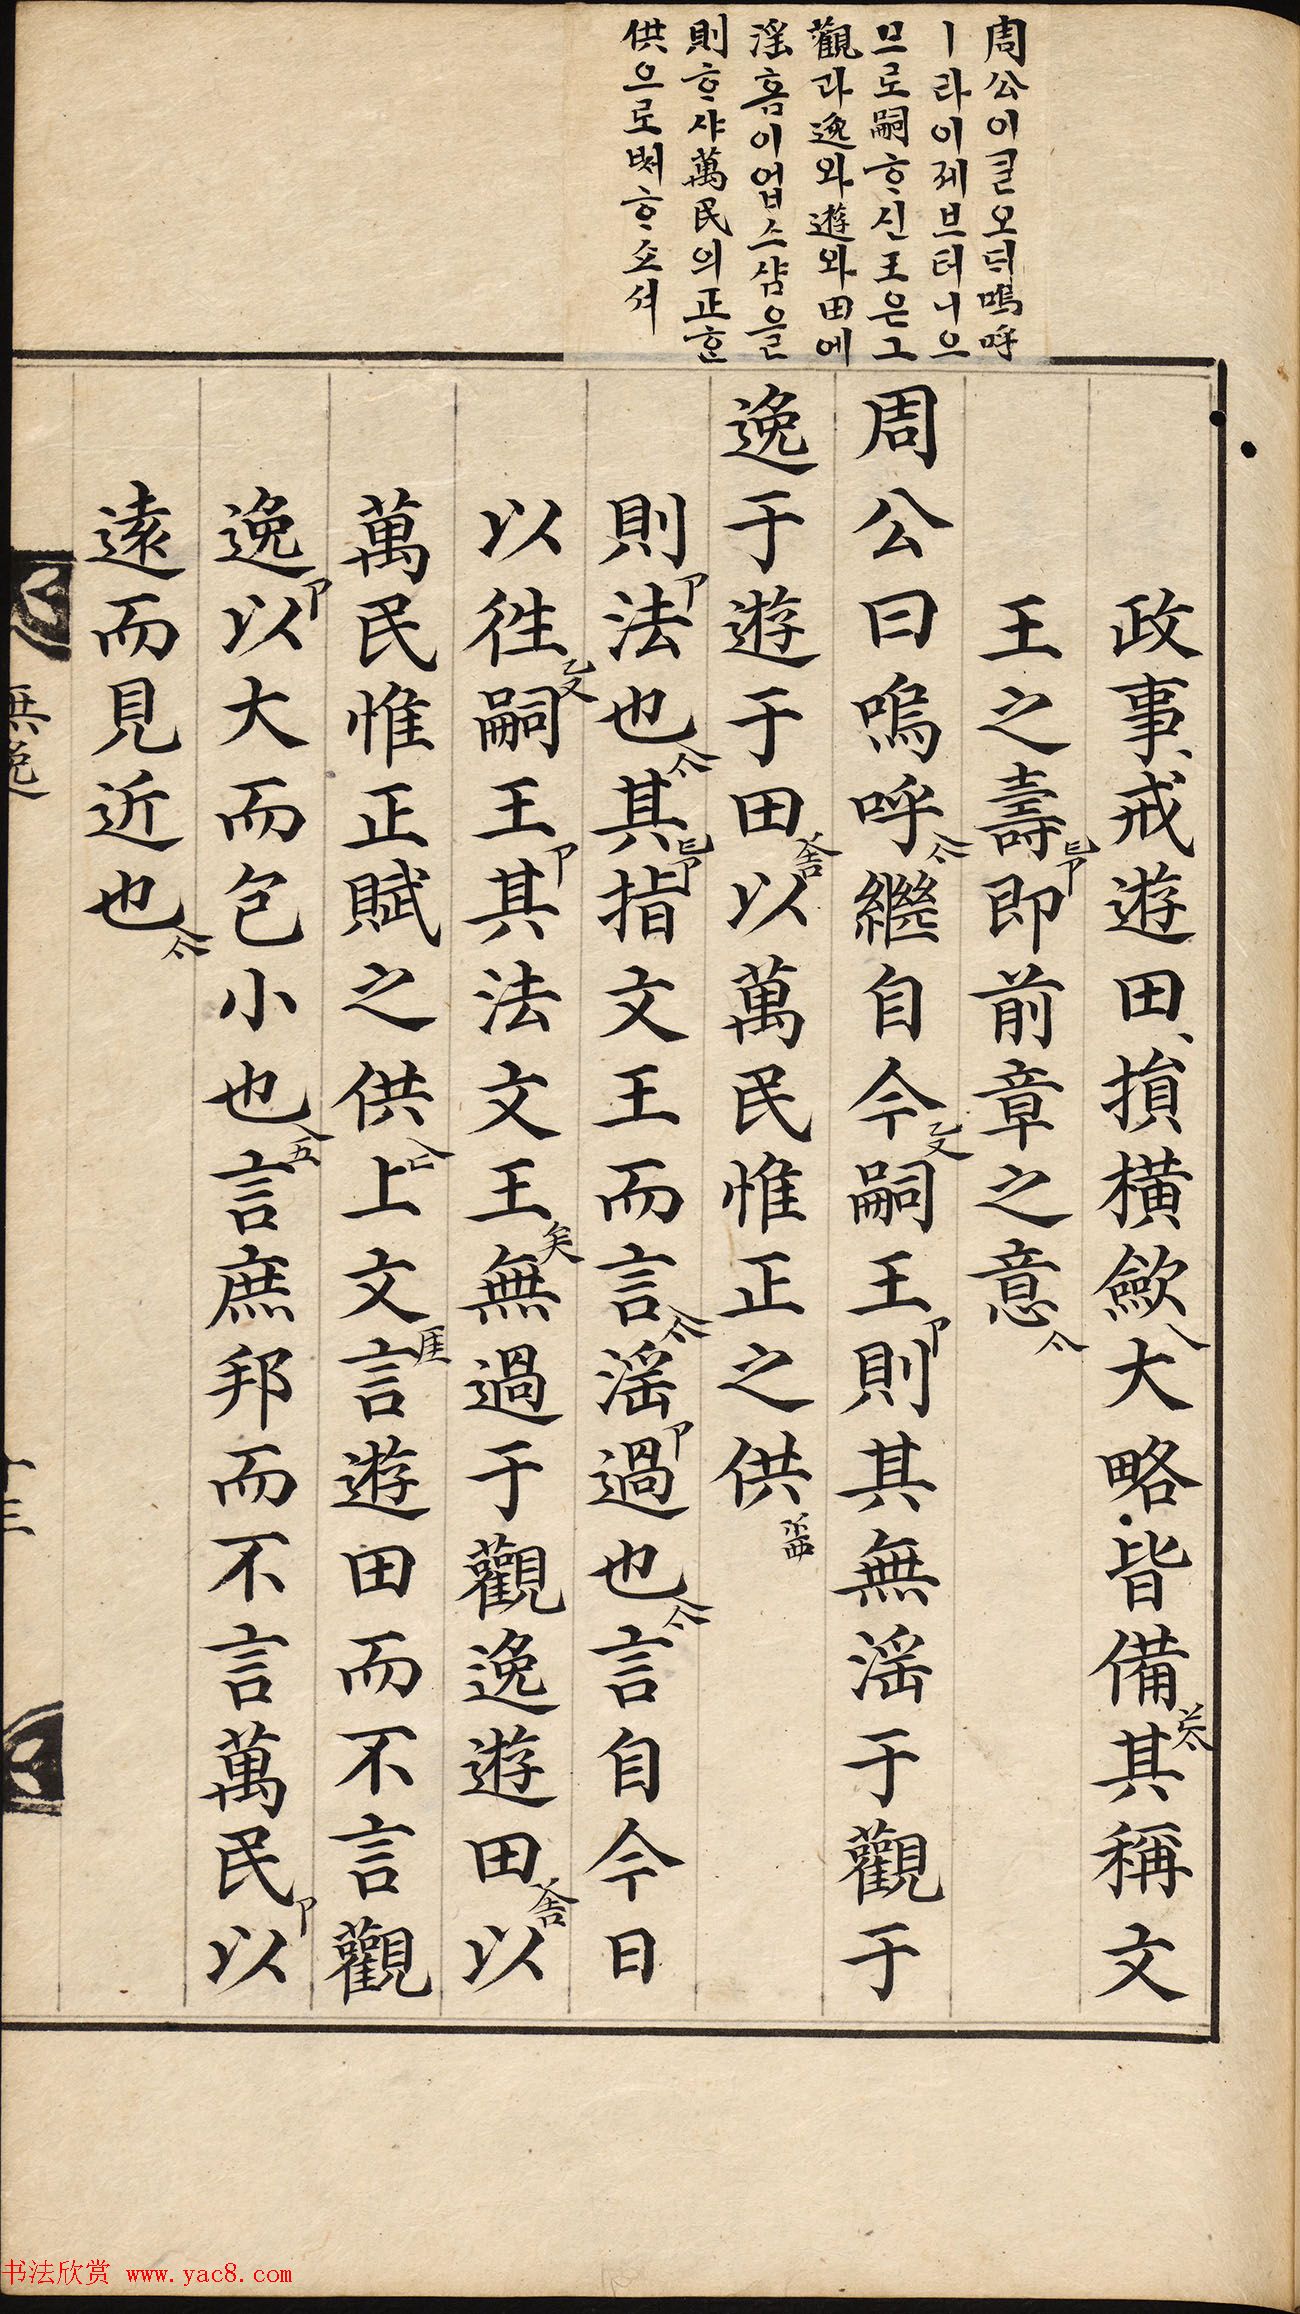 周公이ᄀᆞᆯ오ᄃᆡ嗚呼
ㅣ라이제브터니으
므로嗣ᄒᆞ신王은그
觀과逸와遊와田에
淫홈이업스샴을
則ᄒᆞ샤萬民의正ᄒᆞᆫ
供으로ᄡᅥᄒᆞ쇼셔
政事戒遊田損橫斂大略皆備其稱文
王之壽即前章之意
周公曰嗚呼繼自今嗣王則其無淫于觀于
逸于遊于田以萬民惟正之供
則法也其指文王而言淫過也言自今日
以徃嗣王其法文王無過于觀逸遊田以
萬民惟正賦之供上文言遊田而不言觀
逸以大而包小也言庶邦而不言萬民以
遠而見近也
無逸
十三
书法欣赏 www.yac8.com